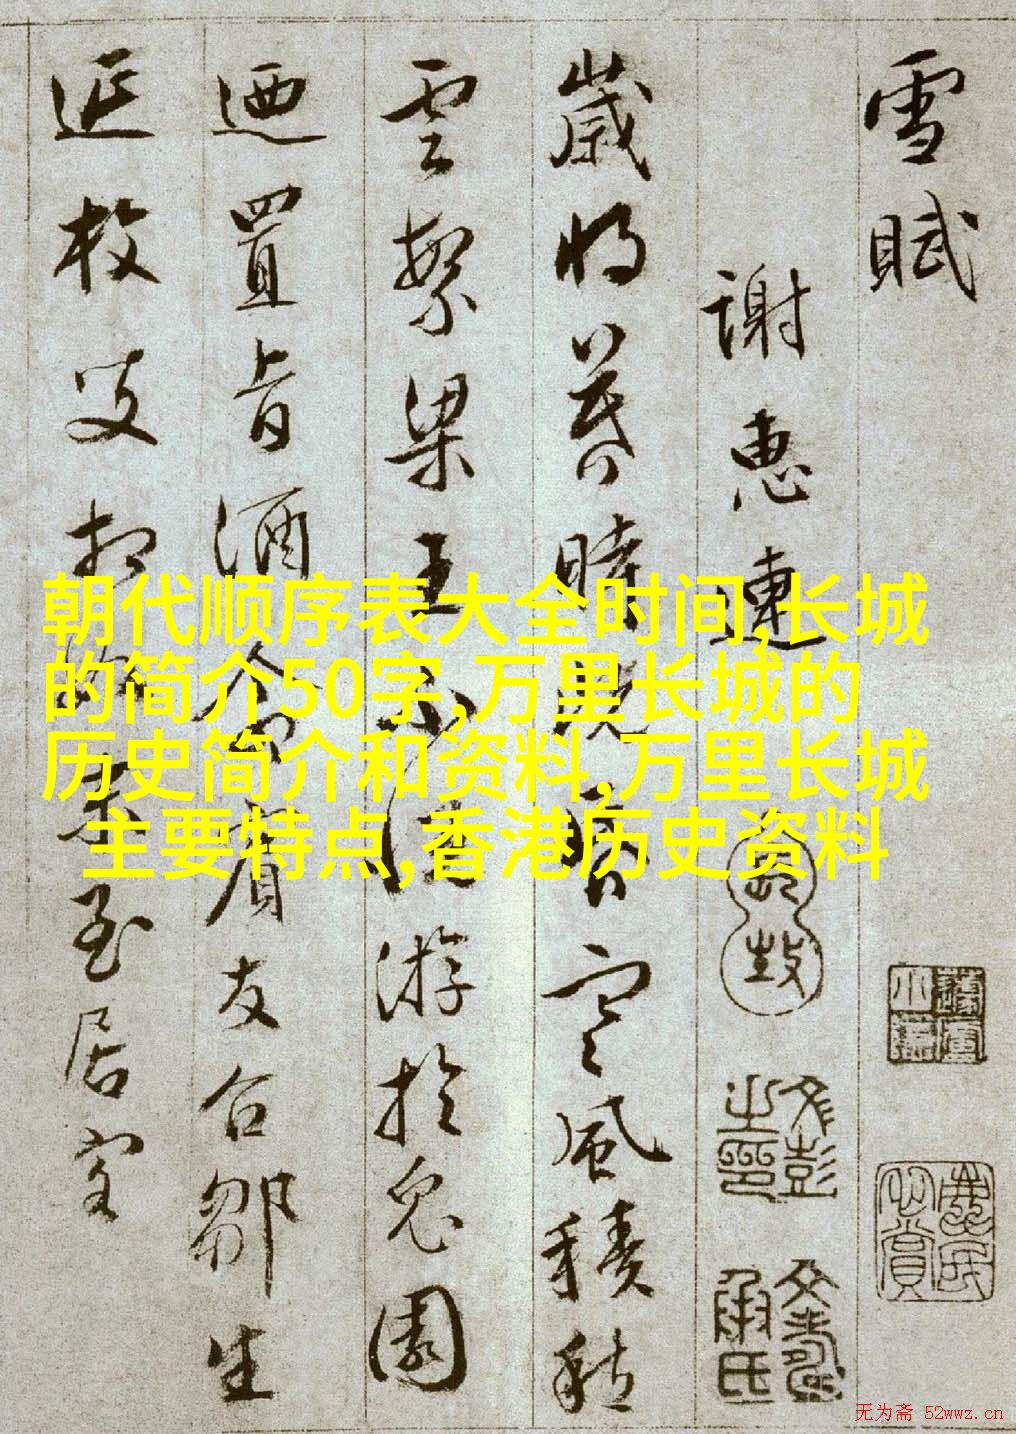 雪賦
謝惠連
歲將暮時既昏寒風積愁
雲繁梁王不悅游於兔園
迺置旨酒命賓友召鄒生
延枚叟相如末至居客
朝代顺序表大全时间,长城
的简介50字,万里长城的
历史简介和资料,万里长城
主要特点,香港历史资料
文彭之印
文壽承氏
无为斋 52wwz.cn